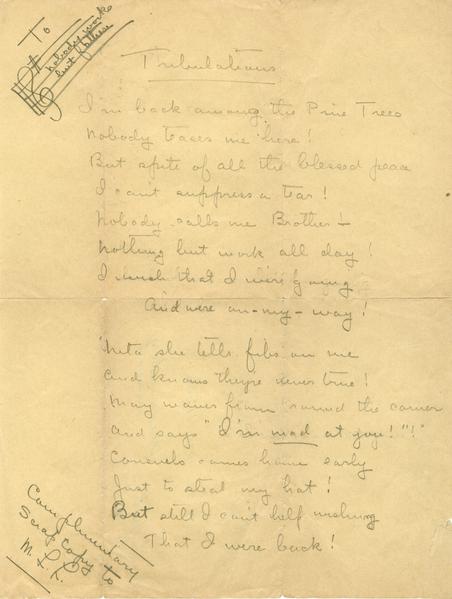 To
nobody works
but father
Tribulations
I'm back among the Pine Trees
Nobody teases me here!
But spite of all the blessed peace
I can't suppress a tear!
Nobody calls me Brother—
Nothing but work all day!
I wish that I were going
And were on-my-way!
'Neta she tells fibs on me
And knows they're never true!
May waves from 'round the corner
And says "I'm mad at you!"!"
Consuelo comes home early
Just to steal my hat!
But still I can't help wishing
That I were back!
Complimentary
Scrap Copy to
M. L. L.